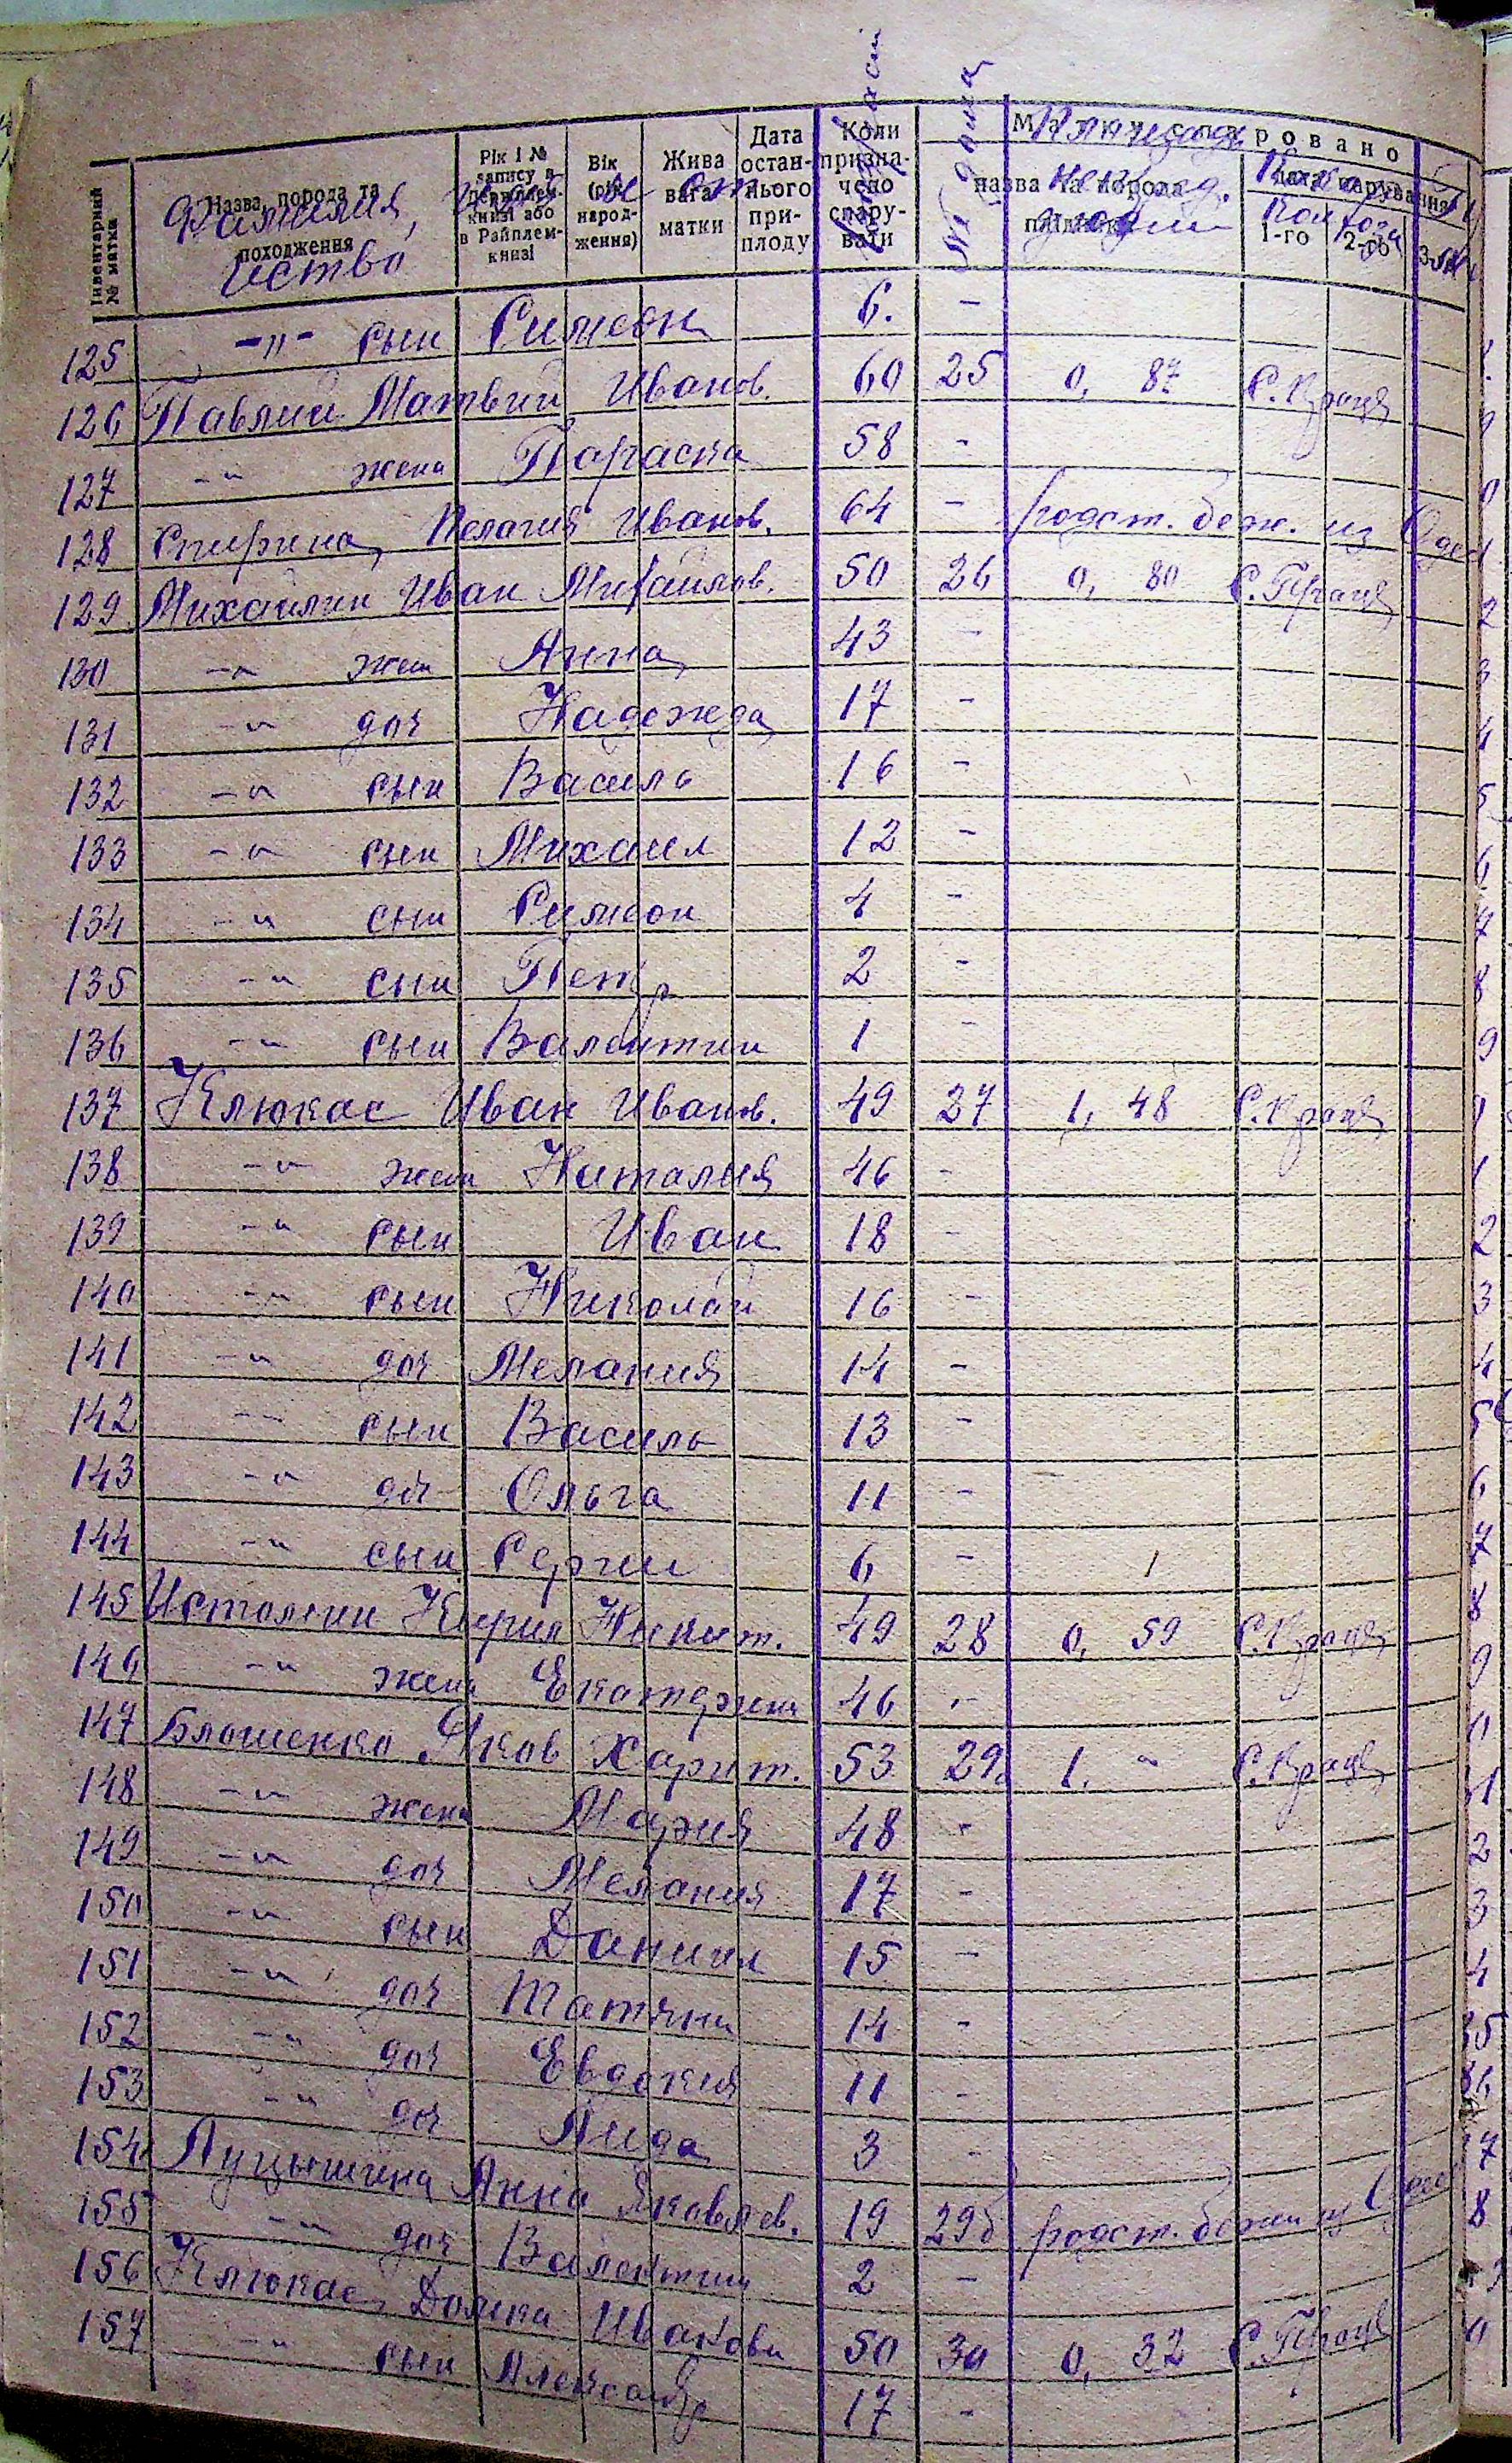 Інвентарний № матка
Назва, порода та походження
Рік і № запису в Держплем-книзі або в Райплем-книзі
Вік (рік народ-ження)
Жива вага матки
Дата остан-нього при-плоду
Коли призна-чено спару-вати
назва та порода
1-го 2-го
Фамилия,
чество
№ дома
125 -"- сын Симеон 6. -
126 Павлий Матвий Иванов. 60 25 0, 87 С. Праця
127 -"- жена Параска 58 -
128 Спирина Пелагия Иванов. 64 - родст. беж. из
129 Михайлин Иван Михайлов. 50 26 0, 80 С. Праця
130 -"- жен Анна 43 -
131 -"- доч Надежда 17 -
132 -"- сын Василь 16 -
133 -"- сын Михаил 12 -
134 -"- сын Симеон 4 -
135 -"- сын Петр 2 -
136 -"- сын Валентин 1 -
137 Клюкас Иван Иванов. 49 27 1, 48 С. Праця
138 -"- жена Наталия 46 -
139 -"- сын Иван 18 -
140 -"- сын Николай 16 -
141 -"- доч Мелания 14 -
142 -"- сын Василь 13 -
143 -"- доч Ольга 11 -
144 -"- сын Сергий 6 -
145 Истомин Кирил Никит. 49 28 0, 59 С. Праця
146 -"- жена Екатерина 46 -
147 Блошенко Яков Харит. 53 29а 1. - С. Праця
148 -"- жена Мария 48 -
149 -"- доч Мелания 17 -
150 -"- сын Даниил 15 -
151 -"- доч Татяна 14 -
152 -"- доч Евдокия 11 -
153 -"- доч Лида 3 -
154 Луцышина Анна Яковлев. 19 29б родст. бежен из
155 -"- доч Валентина 2 -
156 Клюкас Домка Иванова 50 30 0, 32 С. Праця
157 -"- сын Александр 17 -